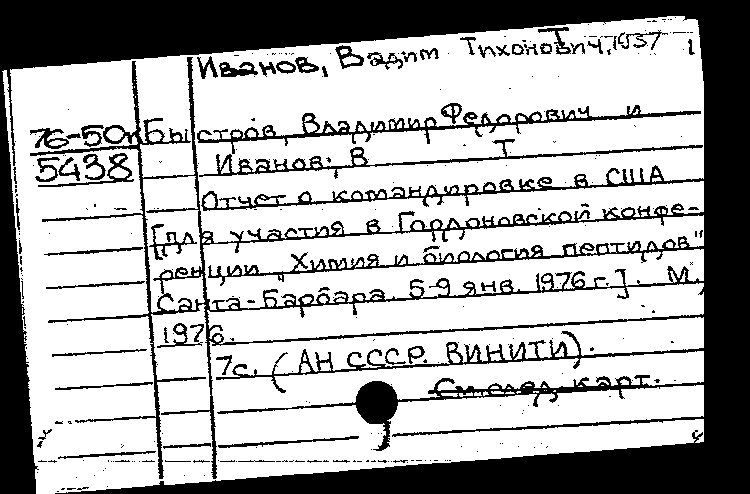 Иванов, Вадим Тихонович, 1937 1
76-50п Быстров, Владимир Федорович и
5438 Иванов, В Т
Отчет о командировке в США
[для участия в Гордоновской конфе-
ренции „Химия и биология пептидов"
Санта-Барбара. 5-9 янв. 1976 г.]. М.,
1976.
7с. (АН СССР. ВИНИТИ).
См. след. карт.